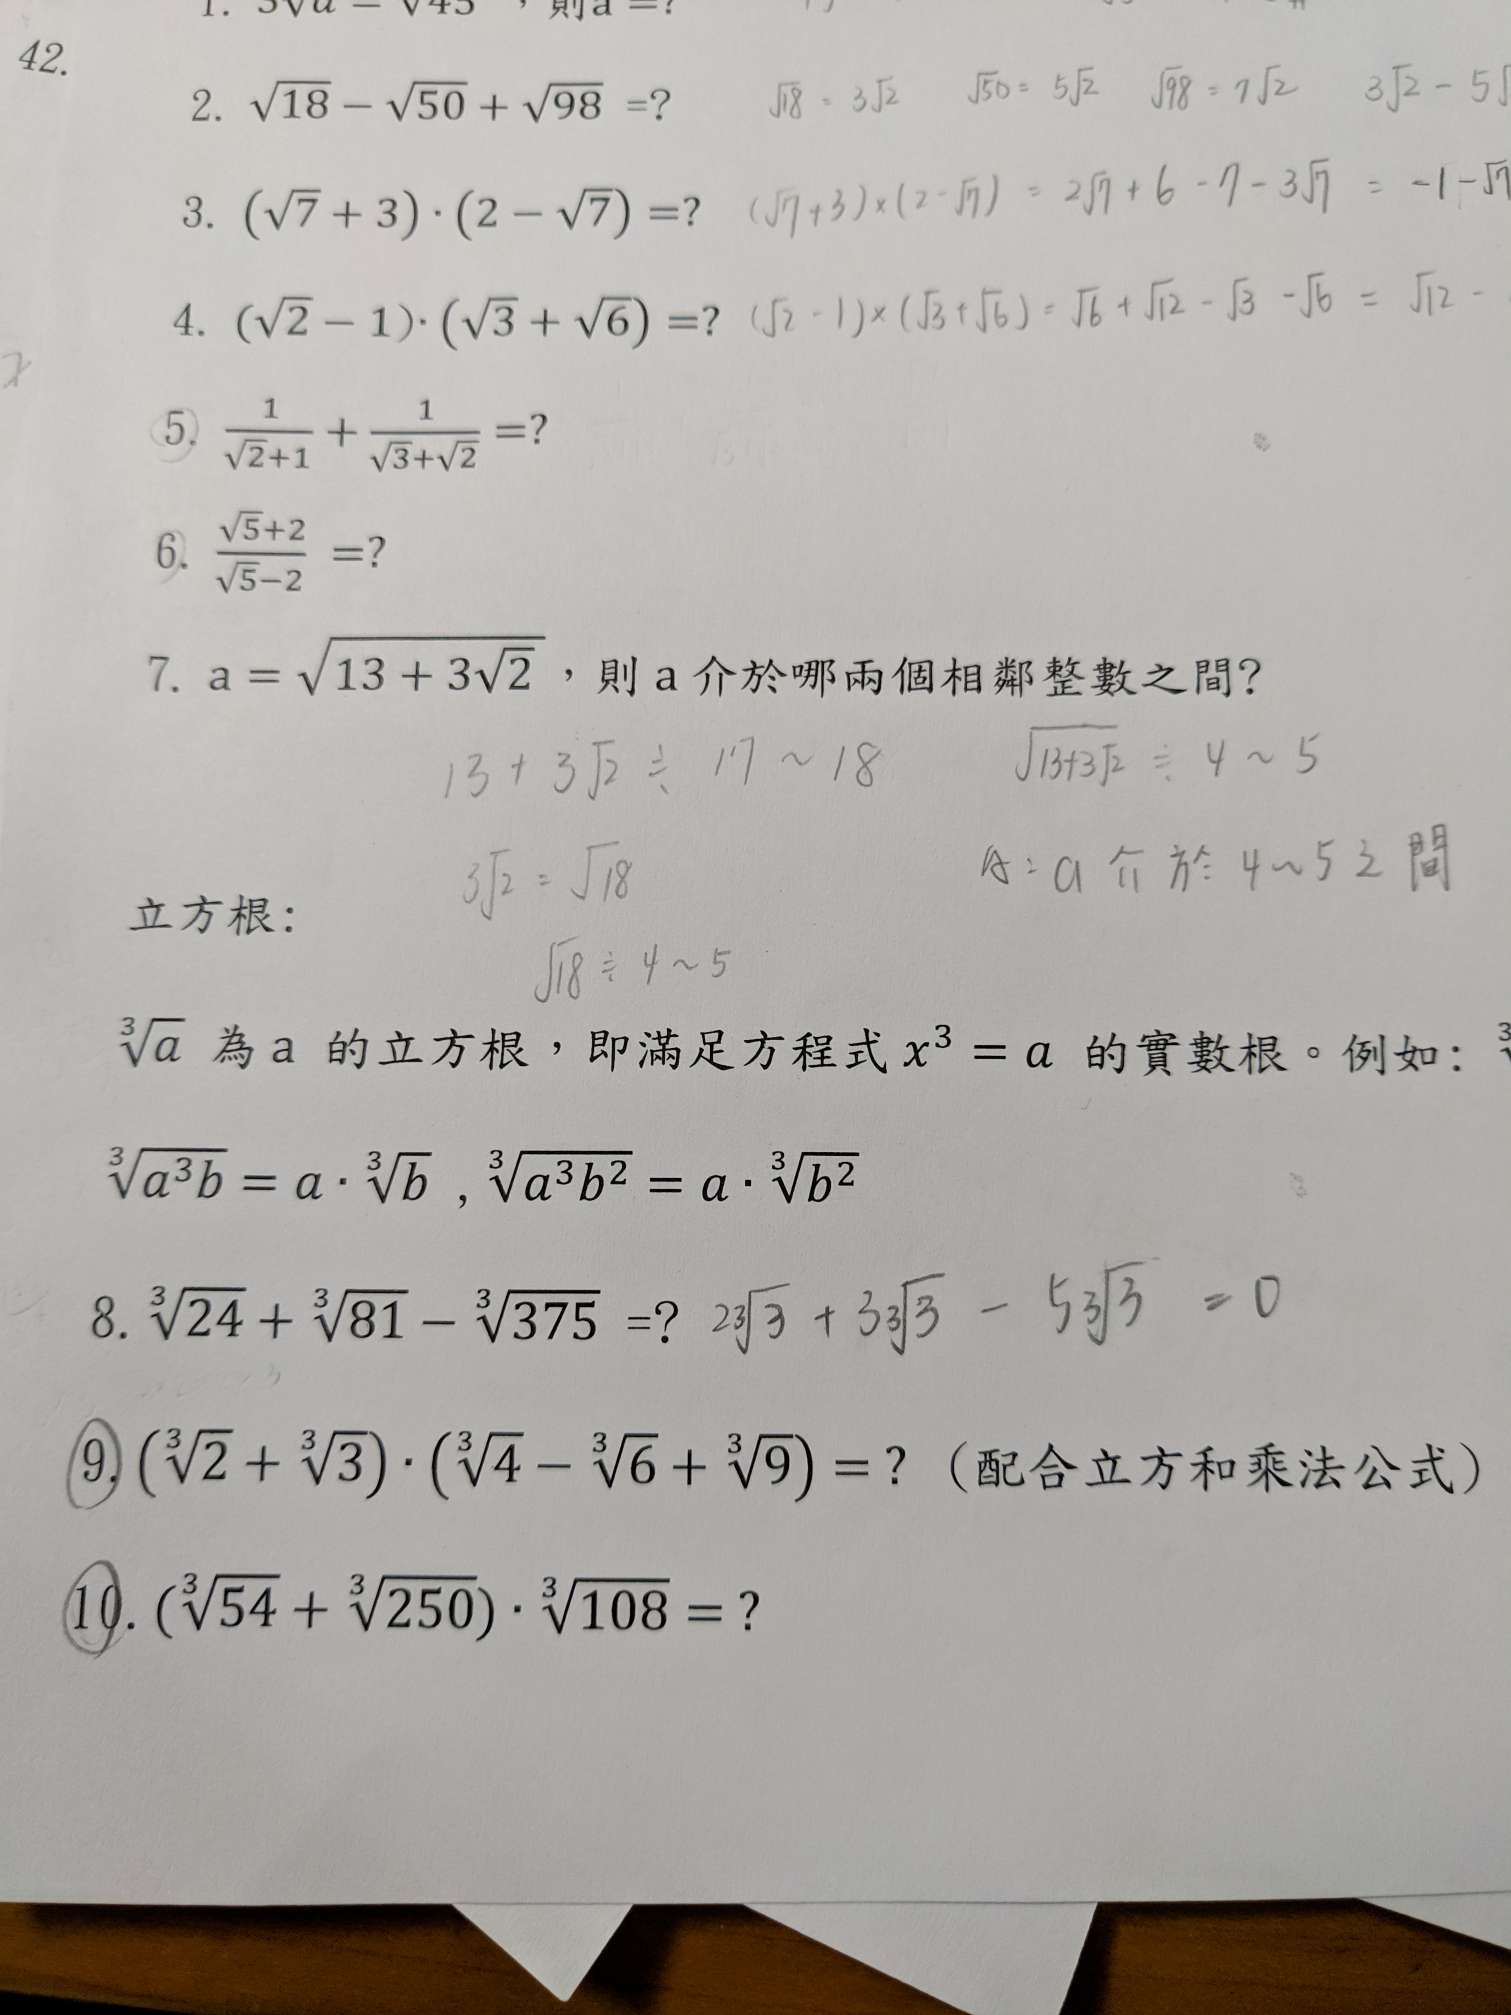 42.
2. √18 − √50 + √98 =? √18 = 3√2 √50 = 5√2 √98 = 7√2 3√2 - 5√
3. (√7 + 3)·(2 − √7) =? (√7+3)×(2-√7) = 2√7 + 6 - 7 - 3√7 = -1-√7
4. (√2 − 1)·(√3 + √6) =? (√2 - 1)×(√3+√6) = √6 + √12 - √3 - √6 = √12 -
5. 1/(√2+1) + 1/(√3+√2) =?
6. (√5+2)/(√5−2) =?
7. a = √(13 + 3√2),則 a 介於哪兩個相鄰整數之間?
13 + 3√2 ≒ 17 ~ 18 √(13+3√2) ≒ 4 ~ 5
3√2 = √18 A: a 介於 4~5 之間
立方根:
√18 ≒ 4 ~ 5
∛a 為 a 的立方根,即滿足方程式 x³ = a 的實數根。例如:
∛(a³b) = a·∛b , ∛(a³b²) = a·∛(b²)
8. ∛24 + ∛81 − ∛375 =? 2∛3 + 3∛3 - 5∛3 = 0
9. (∛2 + ∛3)·(∛4 − ∛6 + ∛9) = ? (配合立方和乘法公式)
10. (∛54 + ∛250)·∛108 = ?